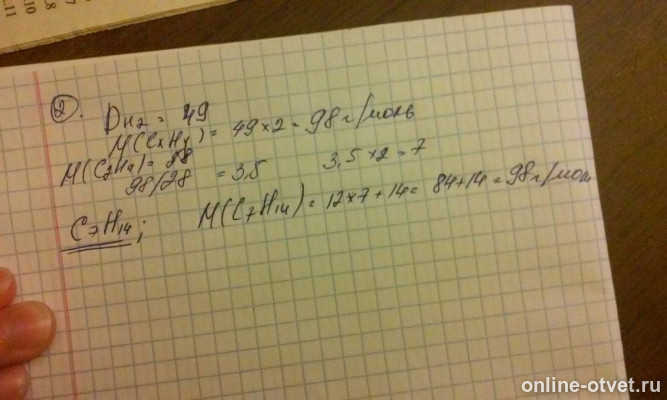 2. D H2 = 49
M(CxHy) = 49×2 = 98 г/моль
M(C2H4) = 28
98/28 = 3,5 3,5×2 = 7
C7H14; M(C7H14) = 12×7+14 = 84+14 = 98 г/мол
online-otvet.ru